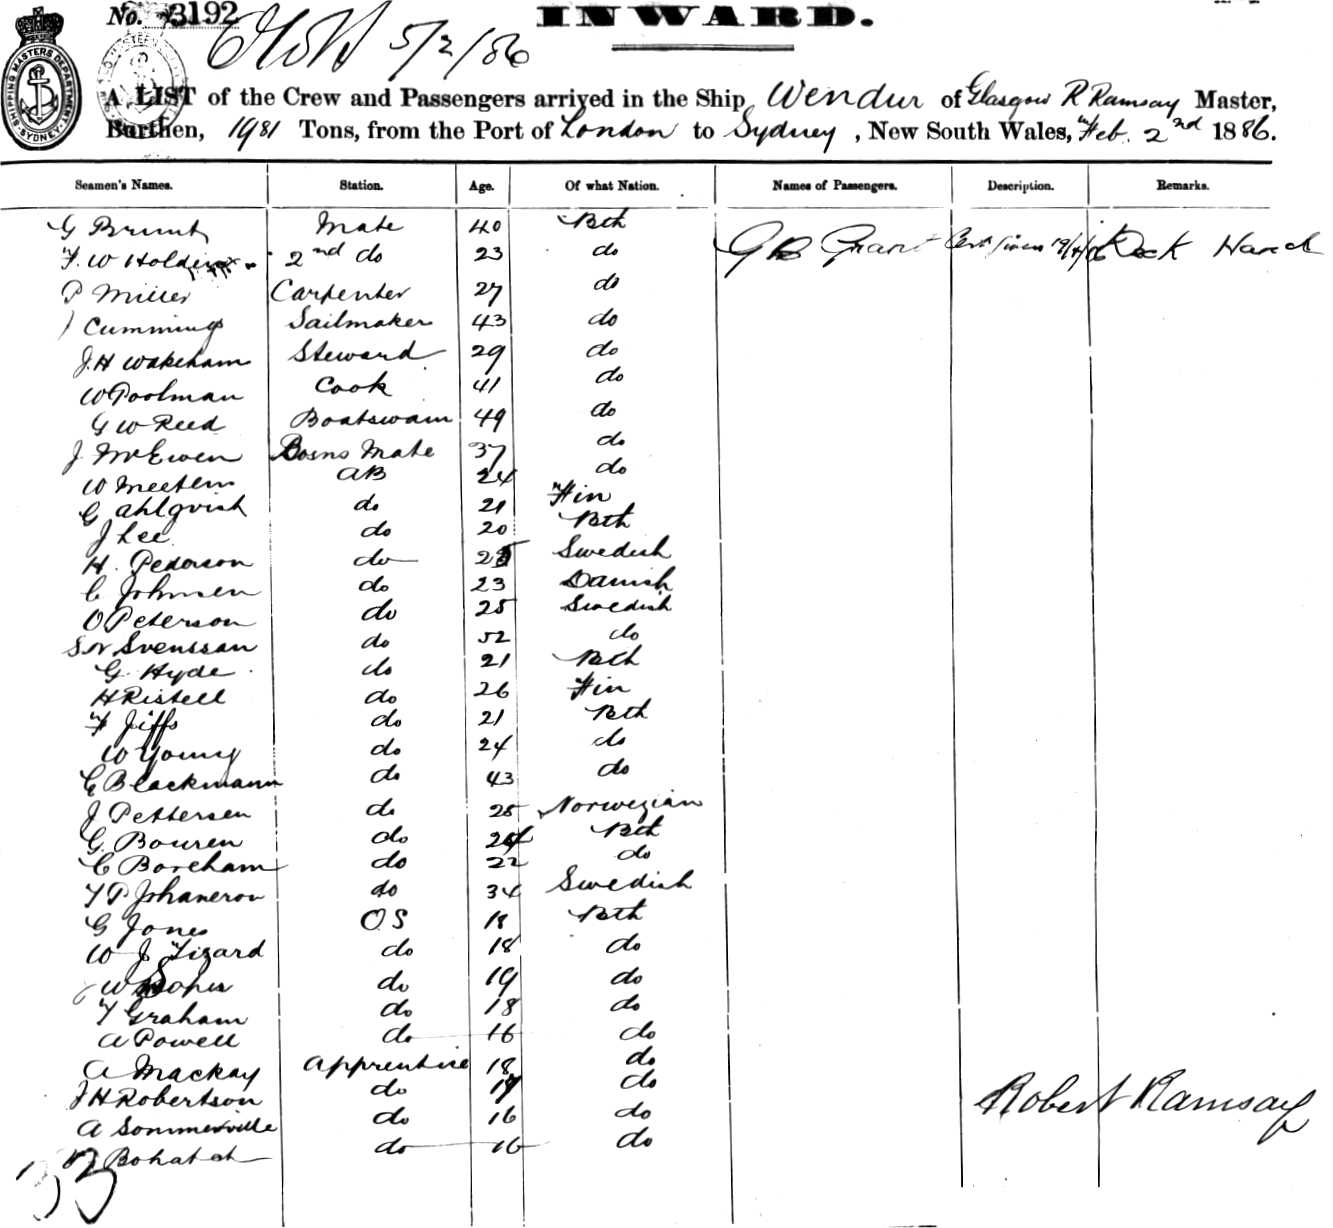 No. 3192
INWARD.
5/2/86
SHIPPING MASTERS DEPARTMENT SYDNEY
A LIST of the Crew and Passengers arrived in the Ship Wendur of Glasgow R Ramsay Master,
Burthen, 1981 Tons, from the Port of London to Sydney, New South Wales, Feb. 2nd 1886.
Seamen's Names. Station. Age. Of what Nation. Names of Passengers. Description. Remarks.
G Brunt Mate 40 Bth
F. W Holding 2nd do 23 do G B Grant
P Miller Carpenter 27 do
J Cummings Sailmaker 43 do
J. H Wakeham Steward 29 do
W Poolman Cook 41 do
G W Reed Boatswain 49 do
J McEwen Bosns Mate 37 do
W AB 24 do
G Ahlqvist do 21 Fin
J Lee do 20 Bth
H. Pederson do Swedish
C Johnsen do 23 Danish
O Peterson do 25 Swedish
S N Svenssan do 52 do
G Hyde do 21 Bth
H Ristell do 26 Fin
F Jiffs do 21 Bth
W Young do 24 do
G Blackmann do 43 do
J Pettersen do 25 Norwegian
G. Bouren do 24 Bth
C Boreham do 22 do
do 34 Swedish
G Jones OS 18 Bth
W J Tizard do 18 do
W do 19 do
T Graham do 18 do
A Powell do 16 do
A Mackay Apprentice 18 do
J H Robertson do 17 do
A Sommerville do 16 do
Bohatch do 16 do
Robert Ramsay
33